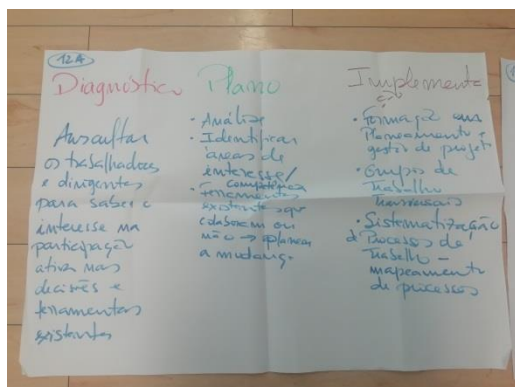 12A
Diagnóstico
Auscultar
os trabalhadores
e dirigentes
para saber o
interesse na
participação
ativa nas
decisões e
ferramentas
existentes
Plano
· Análise
· Identificar
áreas de
interesse/
competência
· Ferramentas
existentes que
colaborem ou
não → planear
a mudança
Implementação
· Formação em
Planeamento e
gestão de projeto
· Grupos de
Trabalho
Transversais
· Sistematização
de Processos de
Trabalho –
mapeamento
de processos